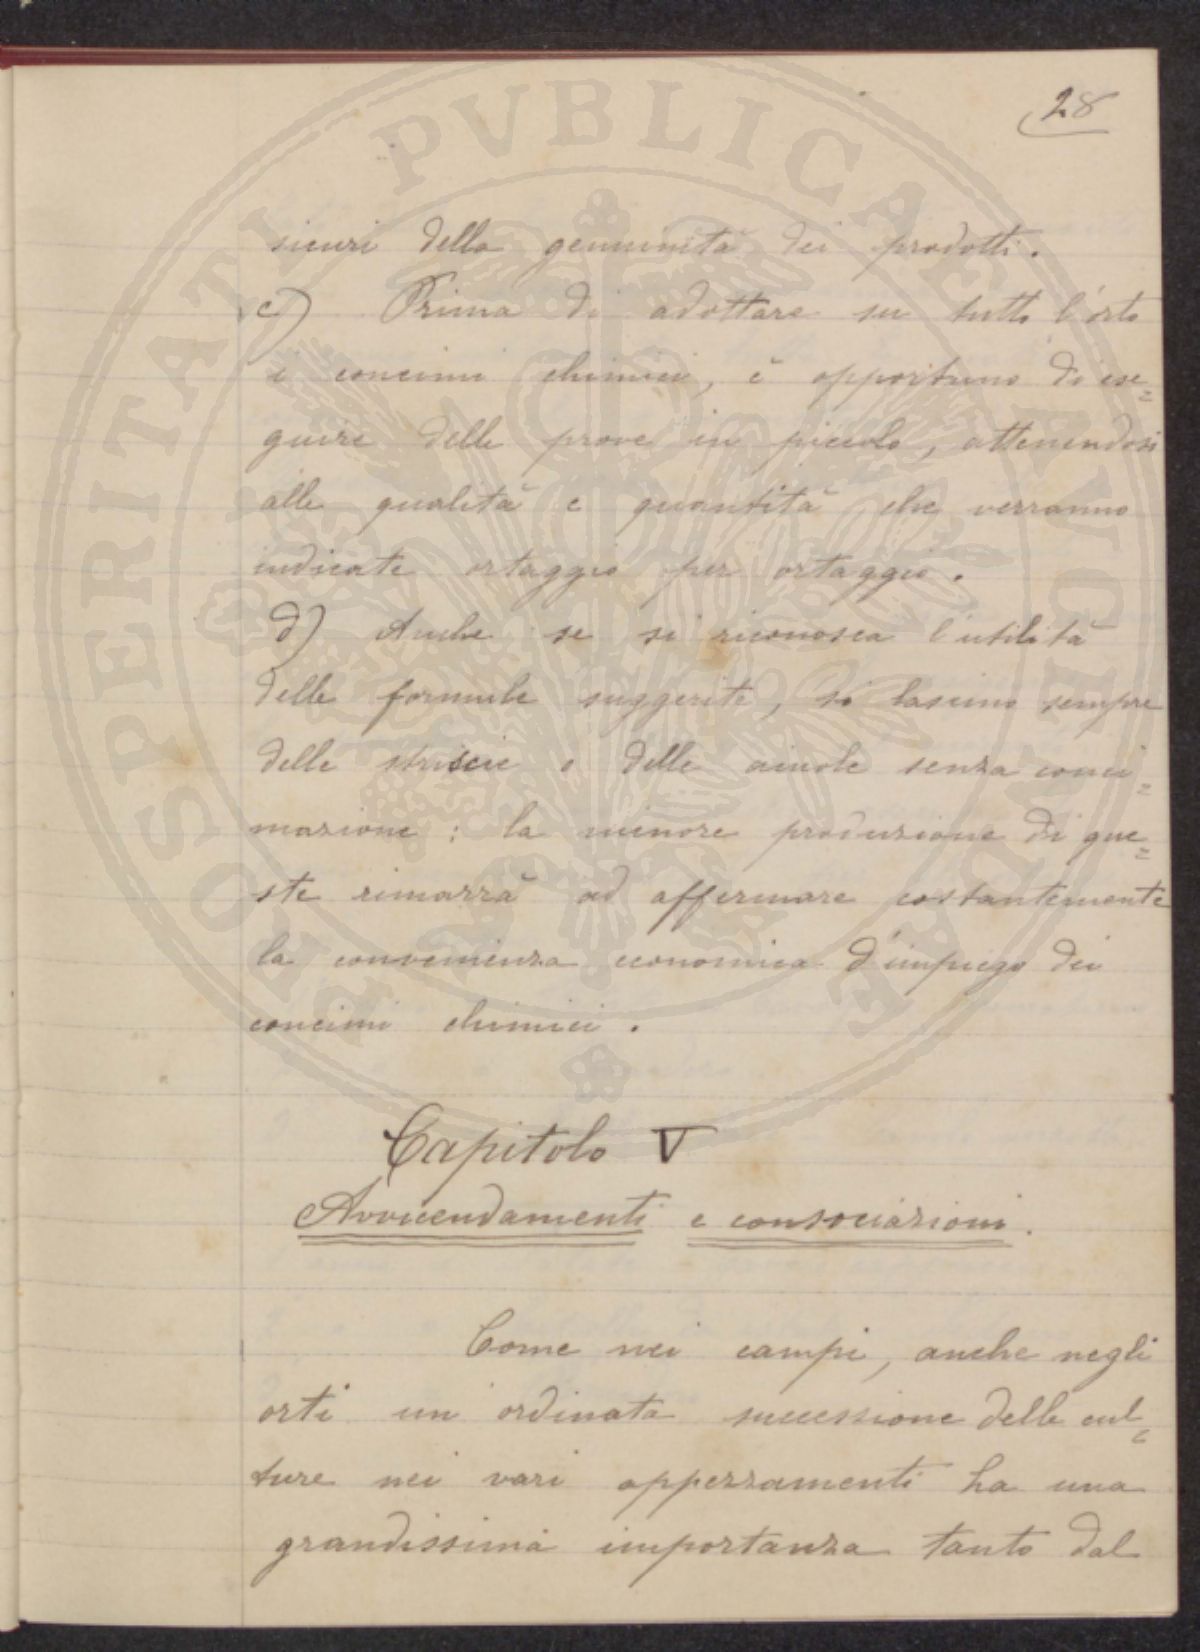 28
sicuri della genuinità dei prodotti.
c) Prima di adottare su tutto l'orto
i concimi chimici, è opportuno di ese=
guire delle prove in piccolo, attenendosi
alle qualità e quantità che verranno
indicate ortaggio per ortaggio.
d) Anche se si riconosca l'utilità
delle formule suggerite, si lascino sempre
delle striscie o delle aiuole senza conci=
mazione: la minore produzione di que=
ste rimarrà ad affermare costantemente
la convenienza economica d'impiego dei
concimi chimici.
Capitolo V
Avvicendamenti e consociazioni.
Come nei campi, anche negli
orti un'ordinata successione delle cul=
ture nei vari appezzamenti ha una
grandissima importanza tanto dal
PROSPERITATI PVBLICAE AVGENDAE